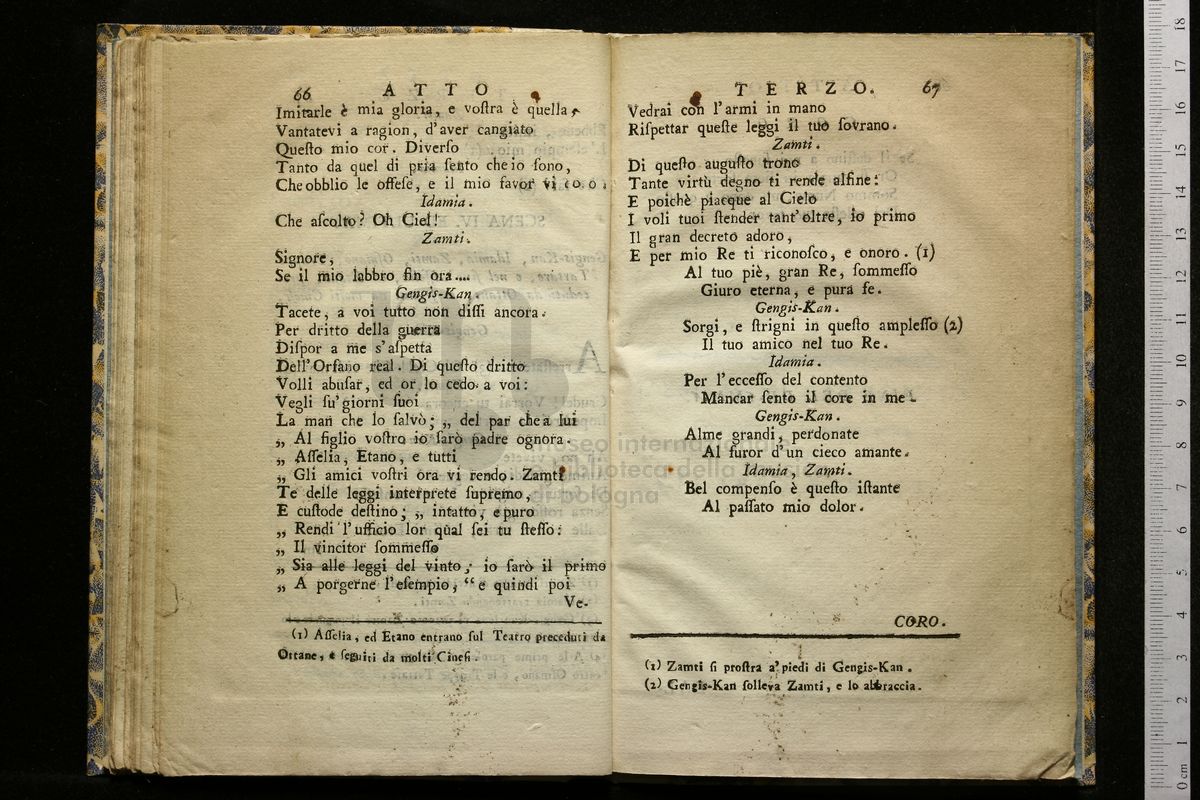 66 ATTO
Imitarle è mia gloria, e voſtra è quella,
Vantatevi a ragion, d'aver cangiato
Queſto mio cor. Diverſo
Tanto da quel di pria ſento che io ſono,
Che obblio le offeſe, e il mio favor vi
Idamia.
Che aſcolto? Oh Ciel!
Zamti.
Signore,
Se il mio labbro fin ora....
Gengis-Kan.
Tacete, a voi tutto non diſſi ancora.
Per dritto della guerra
Diſpor a me s'aſpetta
Dell'Orfano real. Di queſto dritto
Volli abuſar, ed or lo cedo a voi:
Vegli ſu' giorni ſuoi
La man che lo ſalvò; „ del par che a lui
„ Al figlio voſtro io ſarò padre ognora.
„ Aſſelia, Etano, e tutti
„ Gli amici voſtri ora vi rendo. Zamti
Te delle leggi interprete ſupremo,
E cuſtode deſtino; „ intatto, e puro
„ Rendi l'ufficio lor qual ſei tu ſteſſo:
„ Il vincitor ſommeſſo
„ Sia alle leggi del vinto; io ſarò il primo
„ A porgerne l'eſempio, “ e quindi poi
Ve-
(1) Aſſelia, ed Etano entrano ſul Teatro preceduti da
Ottane, e ſeguiti da molti Cineſi.
TERZO. 67
Vedrai con l'armi in mano
Riſpettar queſte leggi il tuo ſovrano.
Zamti.
Di queſto auguſto trono
Tante virtù degno ti rende alfine:
E poichè piacque al Cielo
I voli tuoi ſtender tant'oltre, io primo
Il gran decreto adoro,
E per mio Re ti riconoſco, e onoro. (1)
Al tuo piè, gran Re, ſommeſſo
Giuro eterna, e pura fe.
Gengis-Kan.
Sorgi, e ſtrigni in queſto ampleſſo (2)
Il tuo amico nel tuo Re.
Idamia.
Per l'ecceſſo del contento
Mancar ſento il core in me.
Gengis-Kan.
Alme grandi, perdonate
Al furor d'un cieco amante.
Idamia, Zamti.
Bel compenſo è queſto iſtante
Al paſſato mio dolor.
CORO.
(1) Zamti ſi proſtra a' piedi di Gengis-Kan.
(2) Gengis-Kan ſolleva Zamti, e lo abbraccia.
museo internazionale
biblioteca della
di bologna
0 cm 1 2 3 4 5 6 7 8 9 10 11 12 13 14 15 16 17 18